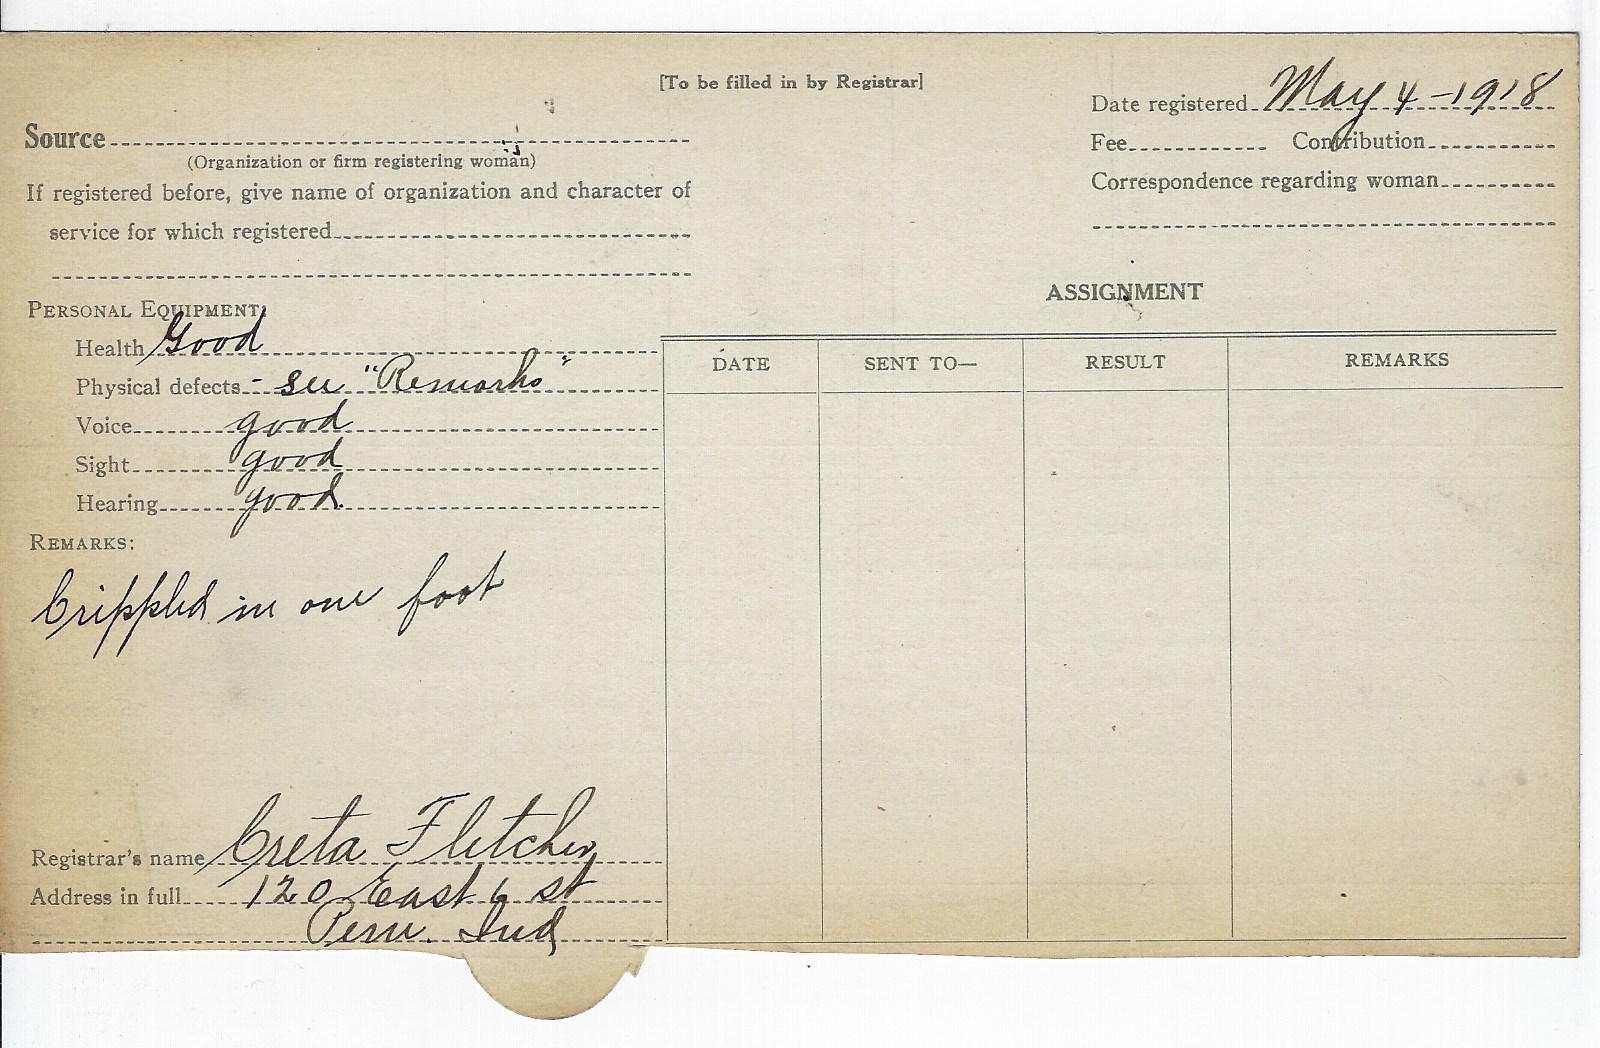 [To be filled in by Registrar]
Date registered May 4-1918
Source
(Organization or firm registering woman)
Fee Contribution
If registered before, give name of organization and character of
Correspondence regarding woman
service for which registered
ASSIGNMENT
PERSONAL EQUIPMENT:
Health Good
Physical defects - see "Remarks"
Voice good
Sight good
Hearing good.
DATE SENT TO— RESULT REMARKS
REMARKS:
Crippled in one foot
Registrar's name Creta Fletcher
Address in full 120 East 6 st
Peru. Ind